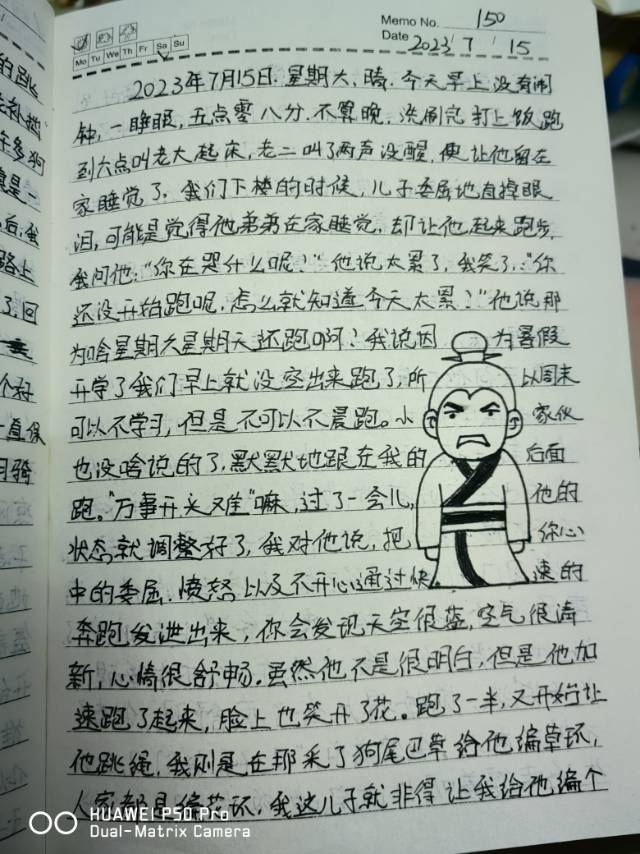 Memo No. 150
Mo Tu We Th Fr Sa Su
Date 2023 / 7 / 15
2023年7月15日.星期六,晴.今天早上没有闹
钟,一睁眼,五点零八分.不算晚,洗刷完打上饭跑
到六点叫老大起床,老二叫了两声没醒,便让他留在
家睡觉了.我们下楼的时候,儿子委屈地直掉眼
泪,可能是觉得他弟弟在家睡觉,却让他起来跑步,
我问他:"你在哭什么呢?"他说太累了,我笑了:"你
还没开始跑呢,怎么就知道今天太累?"他说那
为啥星期六星期天还跑啊?我说因为暑假
开学了我们早上就没空出来跑了,所以周末
可以不学习,但是不可以不晨跑。小家伙
也没啥说的了,默默地跟在我的后面
跑。"万事开头难"嘛,过了一会儿,他的
状态就调整好了,我对他说,把你心
中的委屈.愤怒以及不开心通过快速的
奔跑发泄出来,你会发现天空很蓝,空气很清
新,心情很舒畅.虽然他不是很明白,但是他加
速跑了起来,脸上也笑开了花。跑了一半,又开始让
他跳绳,我则是在那采了狗尾巴草给他编草环,
人家都是编花环,我这儿子就非得让我给他编个
的
补
许多狗
是一
后,我
路上
了,回
个好
直保
骑
HUAWEI P50 Pro
Dual-Matrix Camera